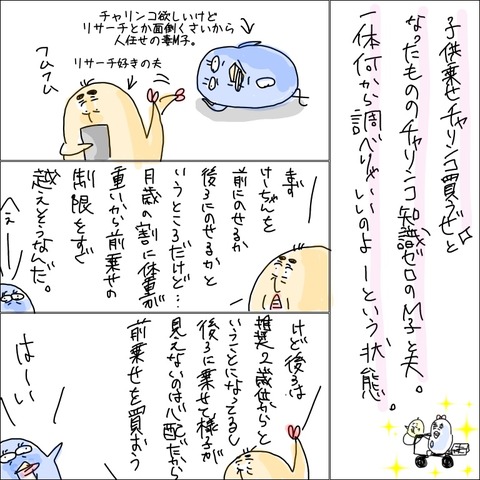 子供乗せチャリンコ買うぜと
なったもののチャリンコ知識ゼロのM子と夫。
一体何から調べりゃいいのよーという状態。
チャリンコ欲しいけど
リサーチとか面倒くさいから
人任せの妻M子。
リサーチ好きの夫
フムフム
まず
けーちゃんを
前にのせるか
後ろにのせるかと
いうところだけど…
月歳の割に体重が
重いから前乗せの
制限をすぐ
越えそうなんだ。
へぇー
けど後ろは
推奨2歳位からと
いうことになってるし
後ろに乗せて様子が
見えないのは心配だから
前乗せを買おう
はーい